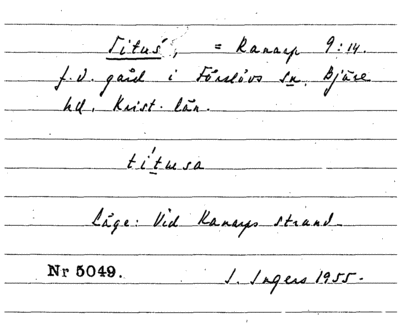 Titus, = Ranarp 9:14.
f.d. gård i Förslövs sn, Bjäre
hd, Krist. län.
títusa
Läge: Vid Ranarps strand
Nr 5049.
I. Ingers 1955.